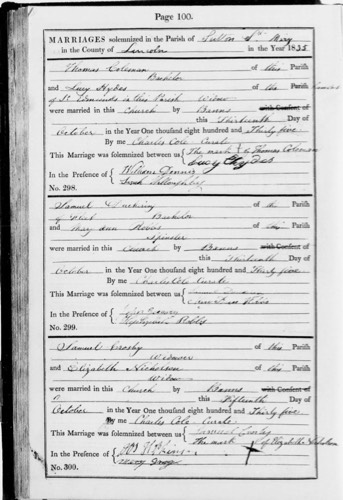 Page 100.
MARRIAGES solemnized in the Parish of Sutton St Mary
in the County of Lincoln in the Year 1835
Thomas Coleman of this Parish
Bachelor
and Lucy Hydes of
of St Edmunds in this Parish Widow
were married in this Church by Banns with Consent of
this Thirteenth Day of
October in the Year One thousand eight hundred and Thirty five
By me Charles Cole Curate
This Marriage was solemnized between us { The mark of Thomas Coleman
Lucy Hydes
In the Presence of { William Dennis
No. 298.
Samuel of the Parish
Bachelor
and Mary Ann of this Parish
Spinster
were married in this Church by Banns with Consent of
this Thirteenth Day of
October in the Year One thousand eight hundred and Thirty five
By me Charles Cole Curate
This Marriage was solemnized between us {
In the Presence of {
No. 299.
Samuel Crosby of this Parish
Widower
and Elizabeth Nicholson of this Parish
Widow
were married in this Church by Banns with Consent of
this Fifteenth Day of
October in the Year One thousand eight hundred and Thirty five
By me Charles Cole Curate
This Marriage was solemnized between us { Samuel Crosby
The mark X of Elizabeth Nicholson
In the Presence of {
No. 300.